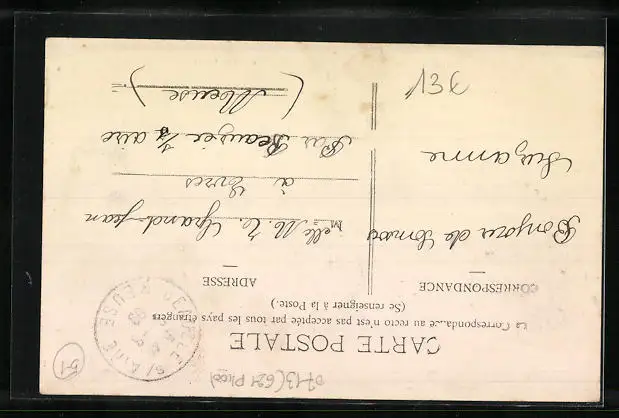 CARTE POSTALE
La Correspondance au recto n'est pas acceptée par tous les pays étrangers
(Se renseigner à la Poste.)
CORRESPONDANCE
ADRESSE
Bonjour de
Suzanne
Melle M. L. Grand-jean
à Evres
Par Beauzée s/s aire
(Meuse)
S/ AIRE
MEUSE
13€
51